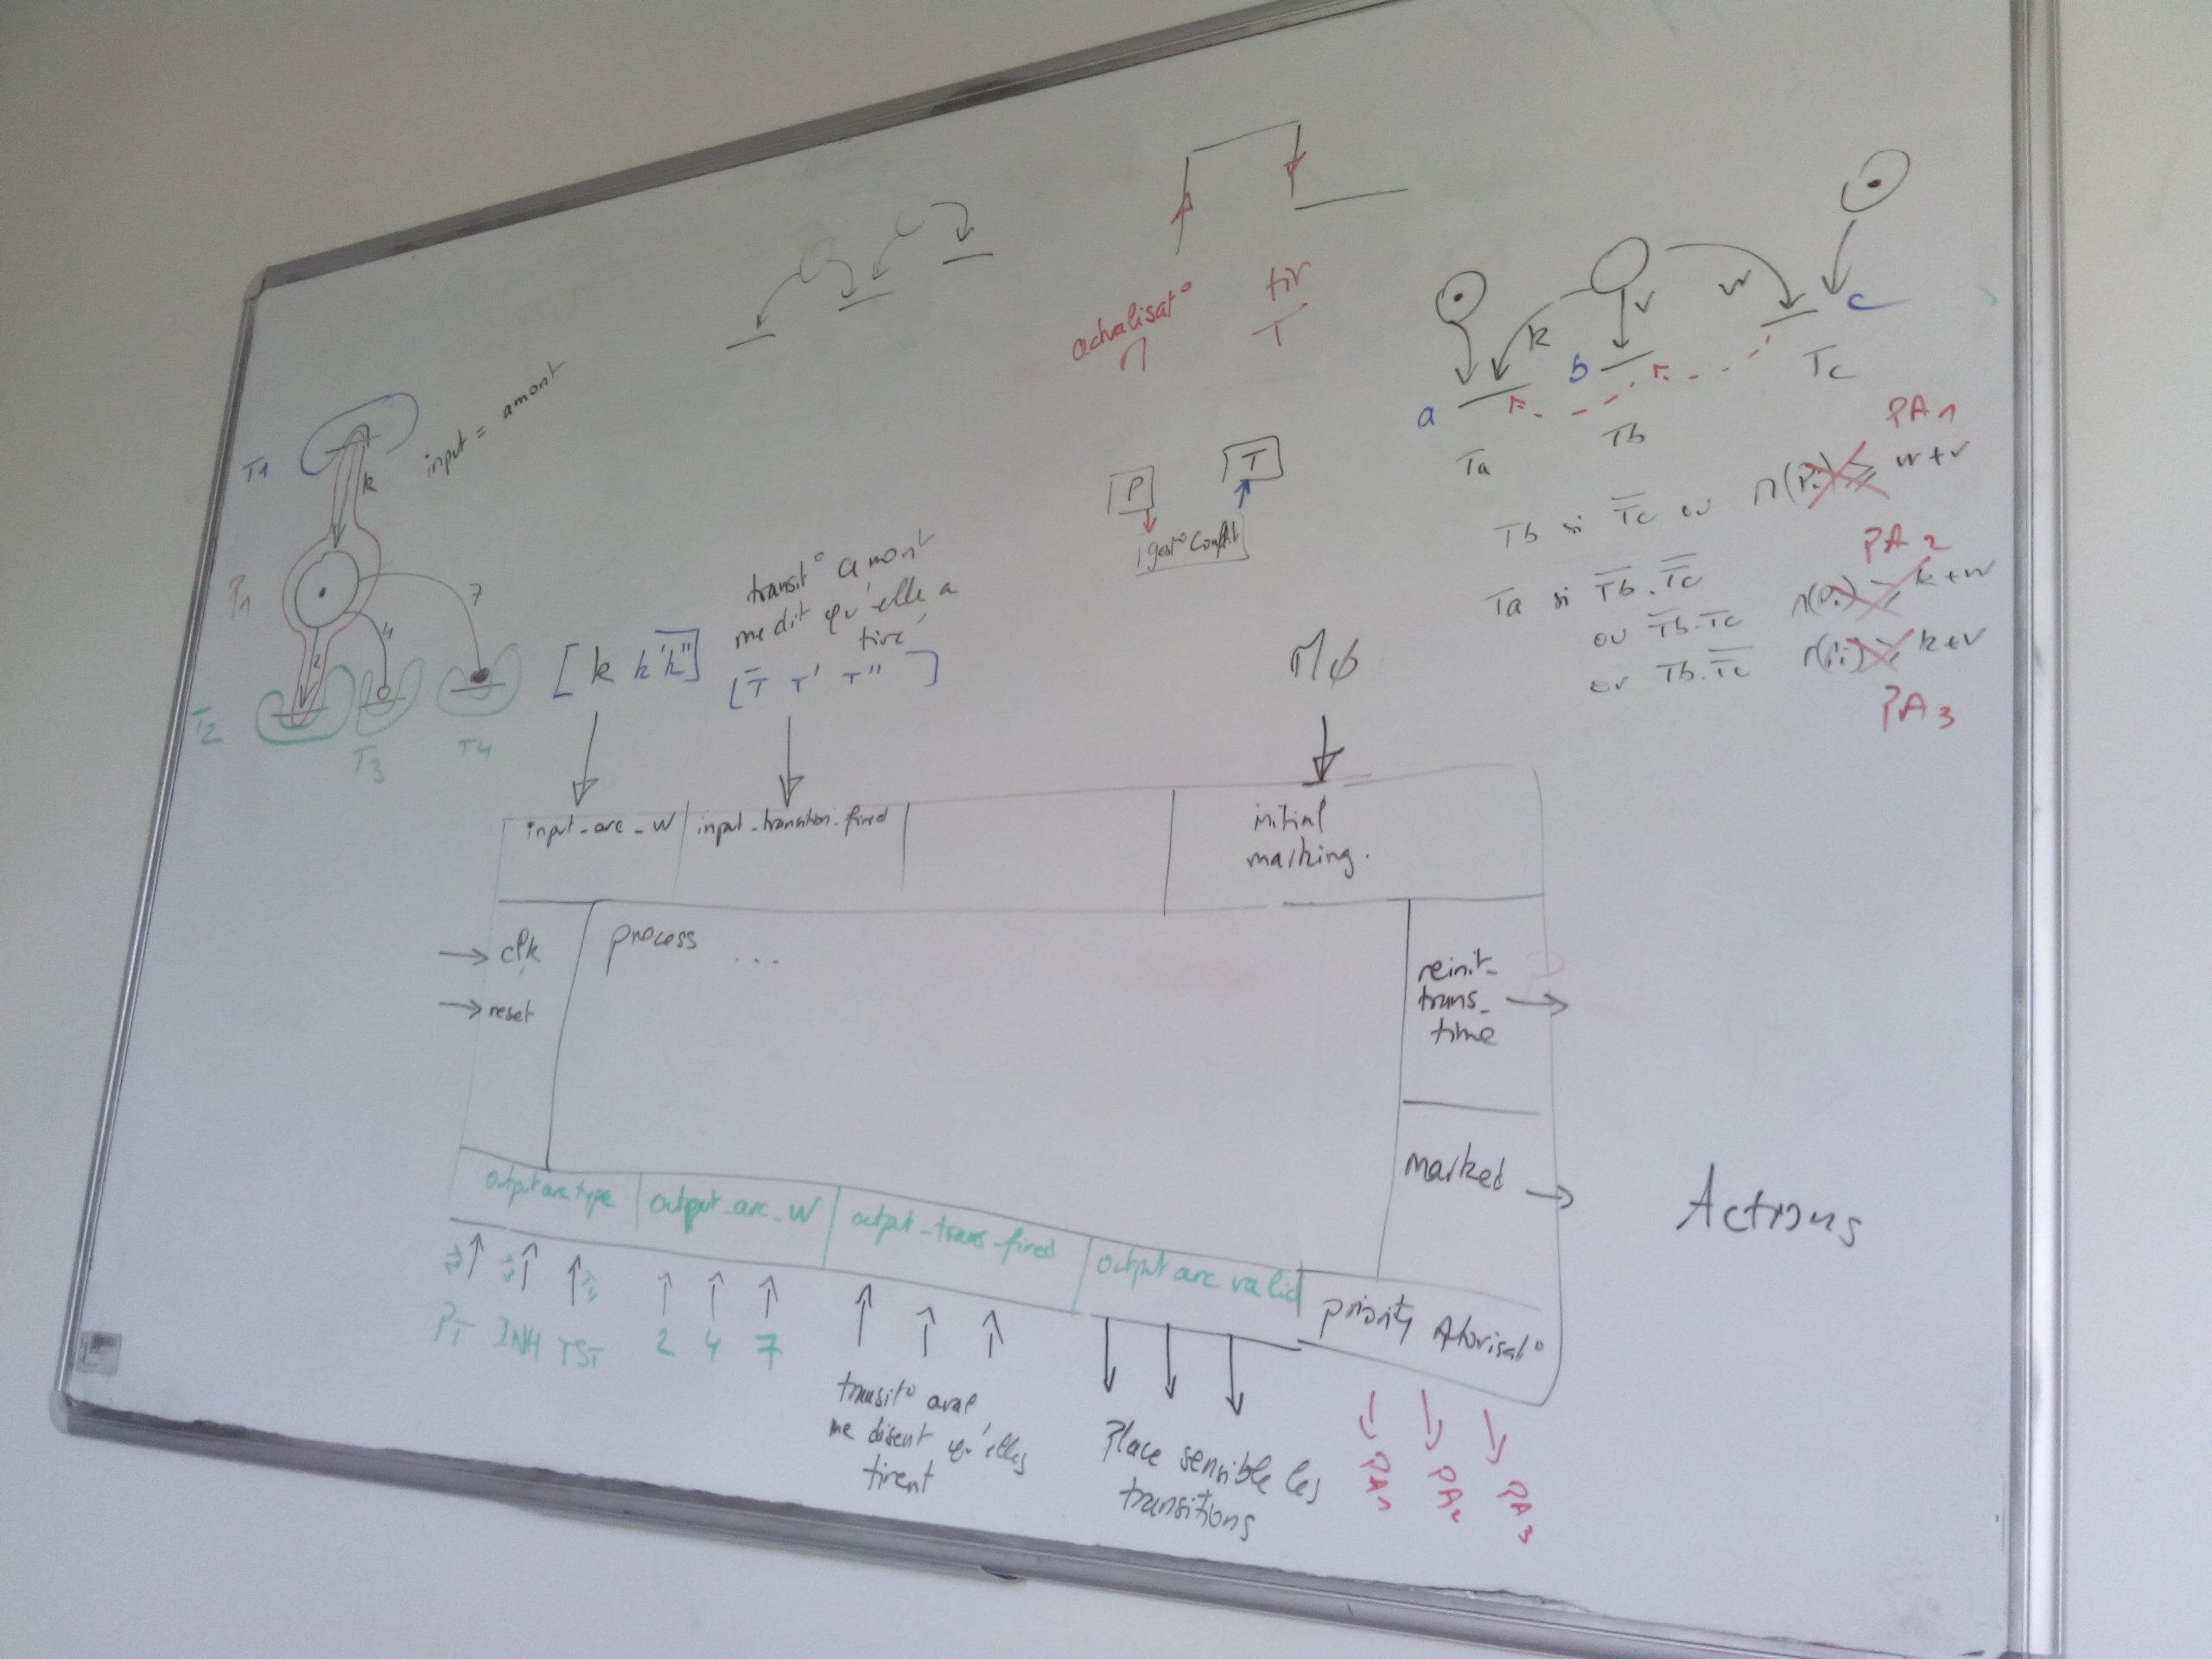 T1
k
input = amont
P1
7
4
2
T2
T3
T4
actualisat°
M
tir
T
P
T
gest° conflit
k
v
w
a
b
c
Ta
Tb
Tc
PA1
Tb si T̅c̅ ou M(Pi) ≥ w+v
PA2
Ta si T̅b̅.T̅c̅
ou T̅b̅.Tc M(Pi) ≥ k+w
or Tb.T̅c̅ M(Pi) ≥ k+v
PA3
[k k' k'']
transit° amont
me dit qu'elle a
tiré
[T T' T'']
MØ
input_arc_W
input_transition_fired
initial
marking.
clk
reset
process ...
reinit_
trans_
time
marked
Actions
output arc type
output_arc_W
output_trans_fired
output arc valid
priority Atorisat°
PT INH TST
2 4 7
transit° aval
me disent qu'elles
tirent
Place sensible les
transitions
PA1
PA2
PA3